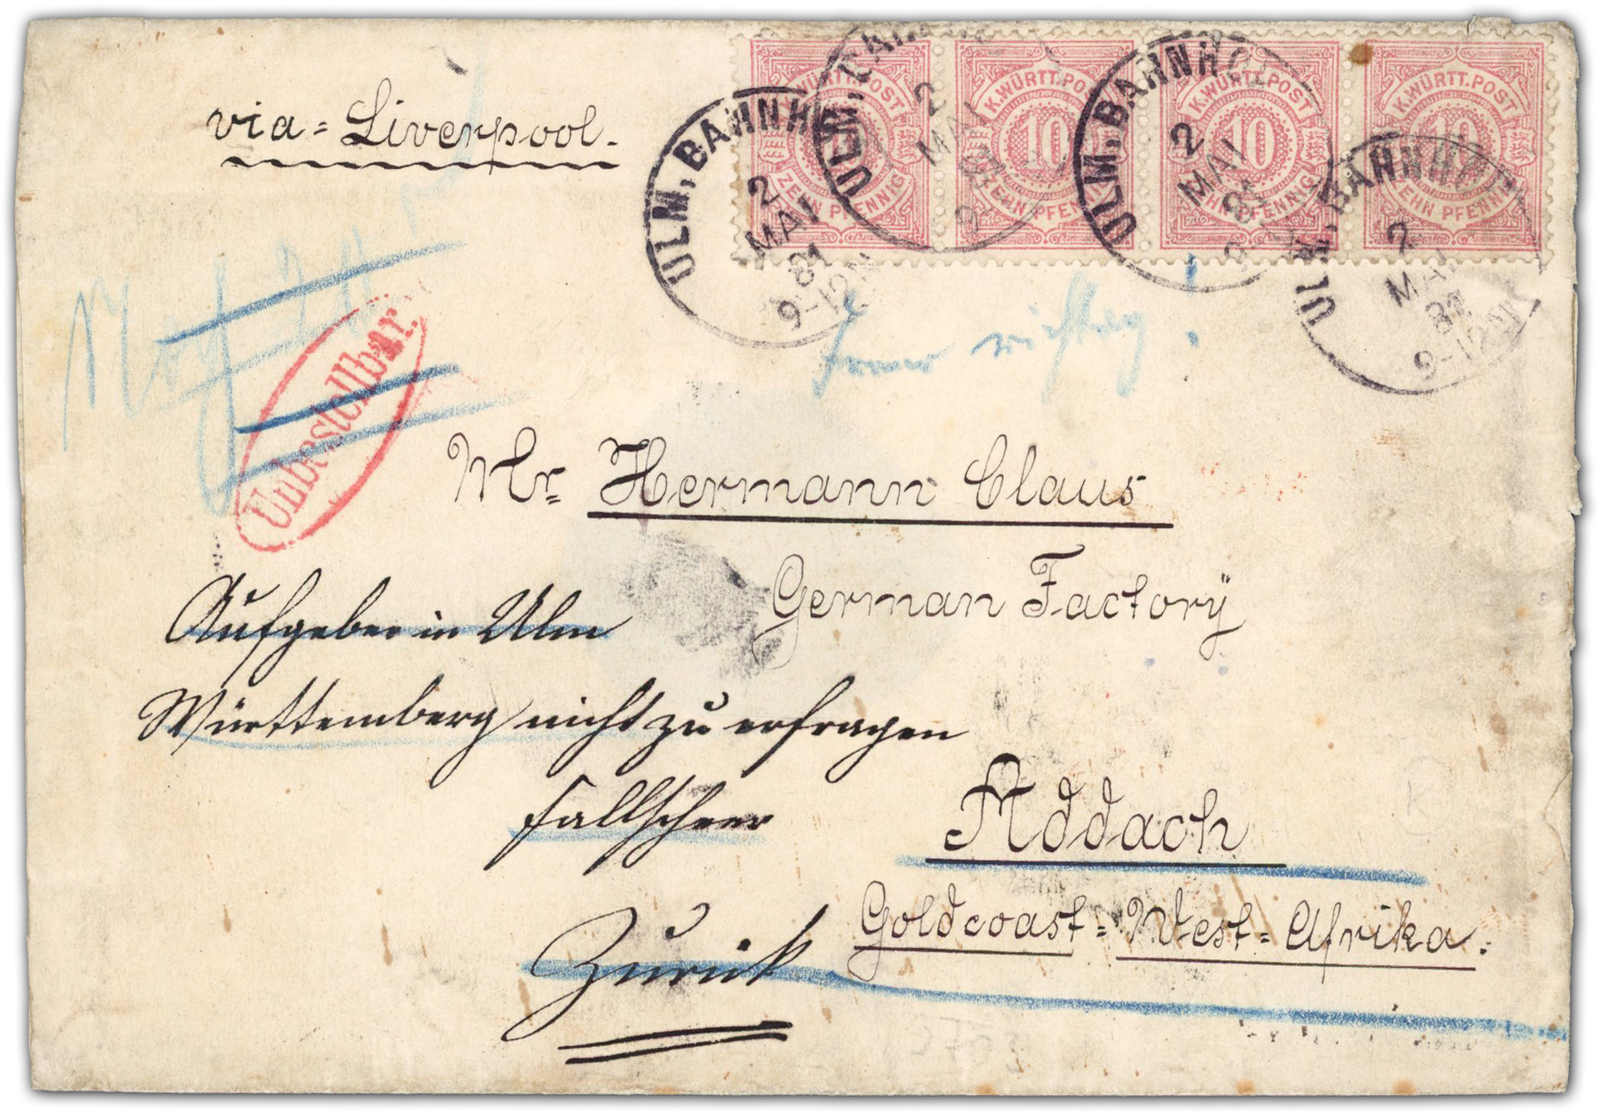 via = Liverpool.
K.WÜRTT.POST
10
ZEHN PFENNIG
K.WÜRTT.POST
10
ZEHN PFENNIG
K.WÜRTT.POST
10
ZEHN PFENNIG
K.WÜRTT.POST
10
ZEHN PFENNIG
ULM, BAHNH
2
MAI
81
9-12N
ULM, BAHN
2
MAI
81
9
ULM, BAHNHOF
2
MAI
81
9
ULM, BAHNHOF
2
MAI
81
9-12N
richtig.
Unbestellbar.
Mr= Hermann Claus
German Factory
Aufgeber in Ulm
Württemberg nicht zu erfragen
Fallscheer
Addach
Goldcoast = West = Afrika.
Zurück